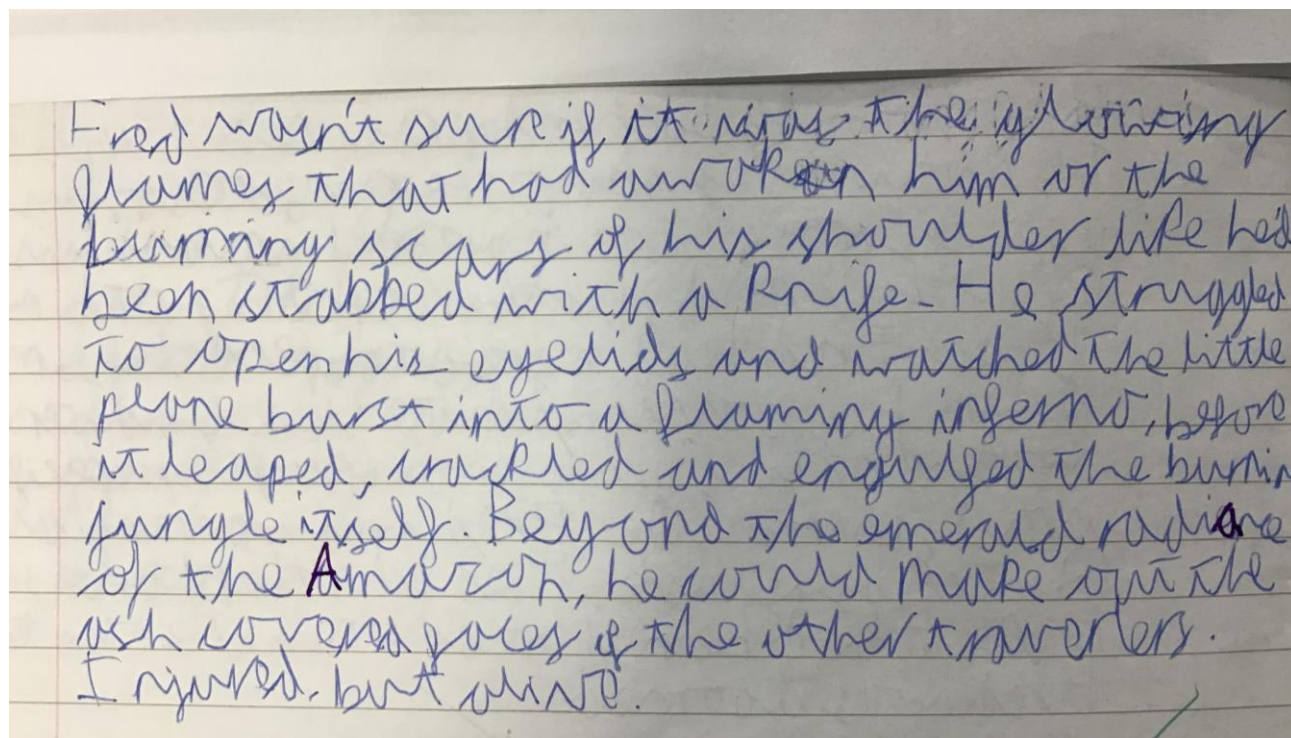 Fred wasn't sure if it was the glowing
flames that had awoken him or the
burning scars of his shoulder like he'd
been stabbed with a knife. He struggled
to open his eyelids and watched the little
plane burst into a flaming inferno, before
it leaped, crackled and engulfed the burnin
jungle itself. Beyond the emerald radiance
of the Amazon, he could make out the
ash covered faces of the other travelers.
Injured, but alive.